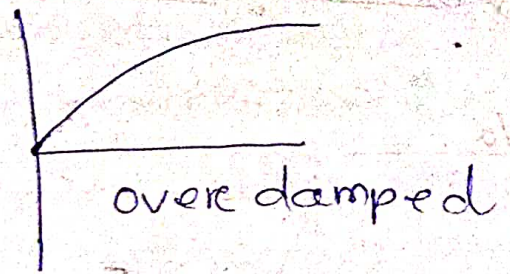 over damped